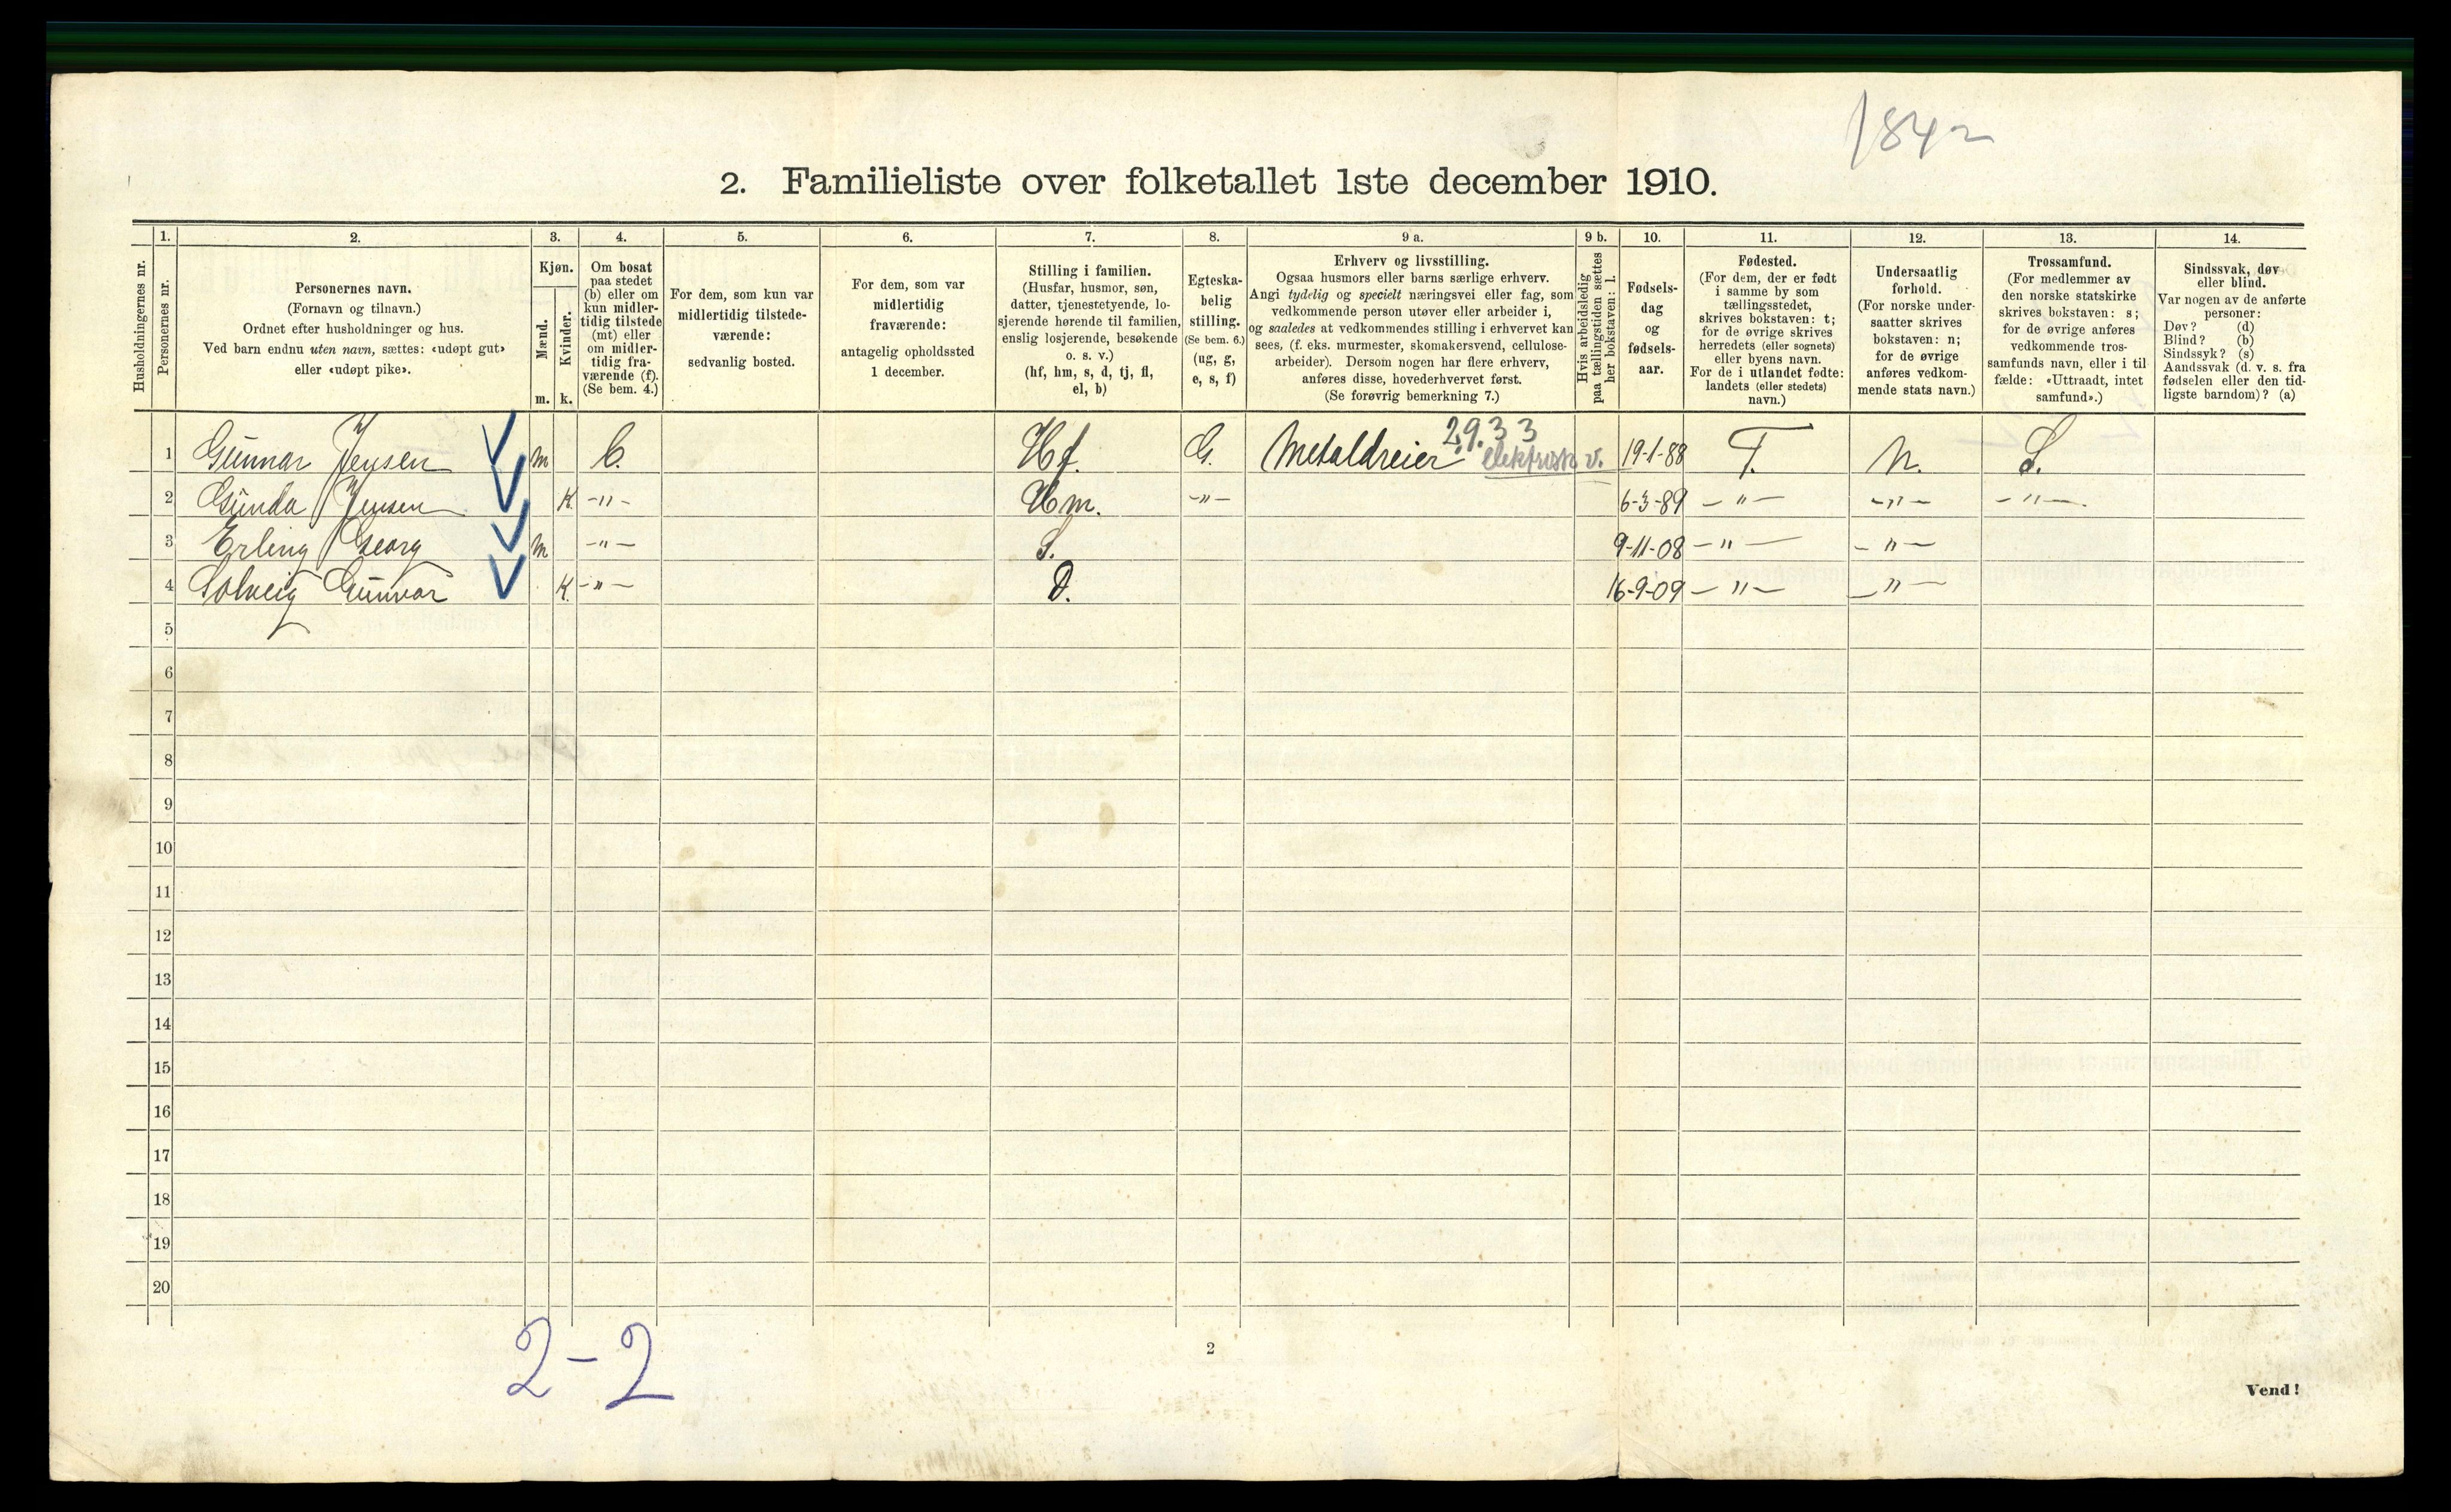 1842
2. Familieliste over folketallet 1ste december 1910.
1. 2. 3. 4. 5. 6. 7. 8. 9 a. 9 b. 10. 11. 12. 13. 14.
Husholdningernes nr.
Personernes nr.
Personernes navn.
(Fornavn og tilnavn.)
Ordnet efter husholdninger og hus.
Ved barn endnu uten navn, sættes: «udøpt gut»
eller «udøpt pike».
Kjøn.
Mænd.
Kvinder.
m. k.
Om bosat
paa stedet
(b) eller om
kun midler-
tidig tilstede
(mt) eller
om midler-
tidig fra-
værende (f).
(Se bem. 4.)
For dem, som kun var
midlertidig tilstede-
værende:
sedvanlig bosted.
For dem, som var
midlertidig
fraværende:
antagelig opholdssted
1 december.
Stilling i familien.
(Husfar, husmor, søn,
datter, tjenestetyende, lo-
sjerende hørende til familien,
enslig losjerende, besøkende
o. s. v.)
(hf, hm, s, d, tj, fl,
el, b)
Egteska-
belig
stilling.
(Se bem. 6.)
(ug, g,
e, s, f)
Erhverv og livsstilling.
Ogsaa husmors eller barns særlige erhverv.
Angi tydelig og specielt næringsvei eller fag, som
vedkommende person utøver eller arbeider i,
og saaledes at vedkommendes stilling i erhvervet kan
sees, (f. eks. murmester, skomakersvend, cellulose-
arbeider). Dersom nogen har flere erhverv,
anføres disse, hovederhvervet først.
(Se forøvrig bemerkning 7.)
Hvis arbeidsledig
paa tællingstiden sættes
her bokstaven: l.
Fødsels-
dag
og
fødsels-
aar.
Fødested.
(For dem, der er født
i samme by som
tællingsstedet,
skrives bokstaven: t;
for de øvrige skrives
herredets (eller sognets)
eller byens navn.
For de i utlandet fødte:
landets (eller stedets)
navn.)
Undersaatlig
forhold.
(For norske under-
saatter skrives
bokstaven: n;
for de øvrige
anføres vedkom-
mende stats navn.)
Trossamfund.
(For medlemmer av
den norske statskirke
skrives bokstaven: s;
for de øvrige anføres
vedkommende tros-
samfunds navn, eller i til-
fælde: «Uttraadt, intet
samfund».)
Sindssvak, døv
eller blind.
Var nogen av de anførte
personer:
Døv? (d)
Blind? (b)
Sindssyk? (s)
Aandssvak (d. v. s. fra
fødselen eller den tid-
ligste barndom)? (a)
2933
1 Gunnar Jensen m b. Hf. G. Metaldreier elektrisk v. 19-1-88 T. N. S.
2 Gunda Jensen K. -"- Hm. -"- 6-3-89 -"- -"- -"-
3 Erling Georg m -"- S. 9-11-08 -"- -"-
4 Solveig Gunvor K. -"- D. 16-9-09 -"- -"-
5
6
7
8
9
10
11
12
13
14
15
16
17
18
19
20
2-2
2
Vend!